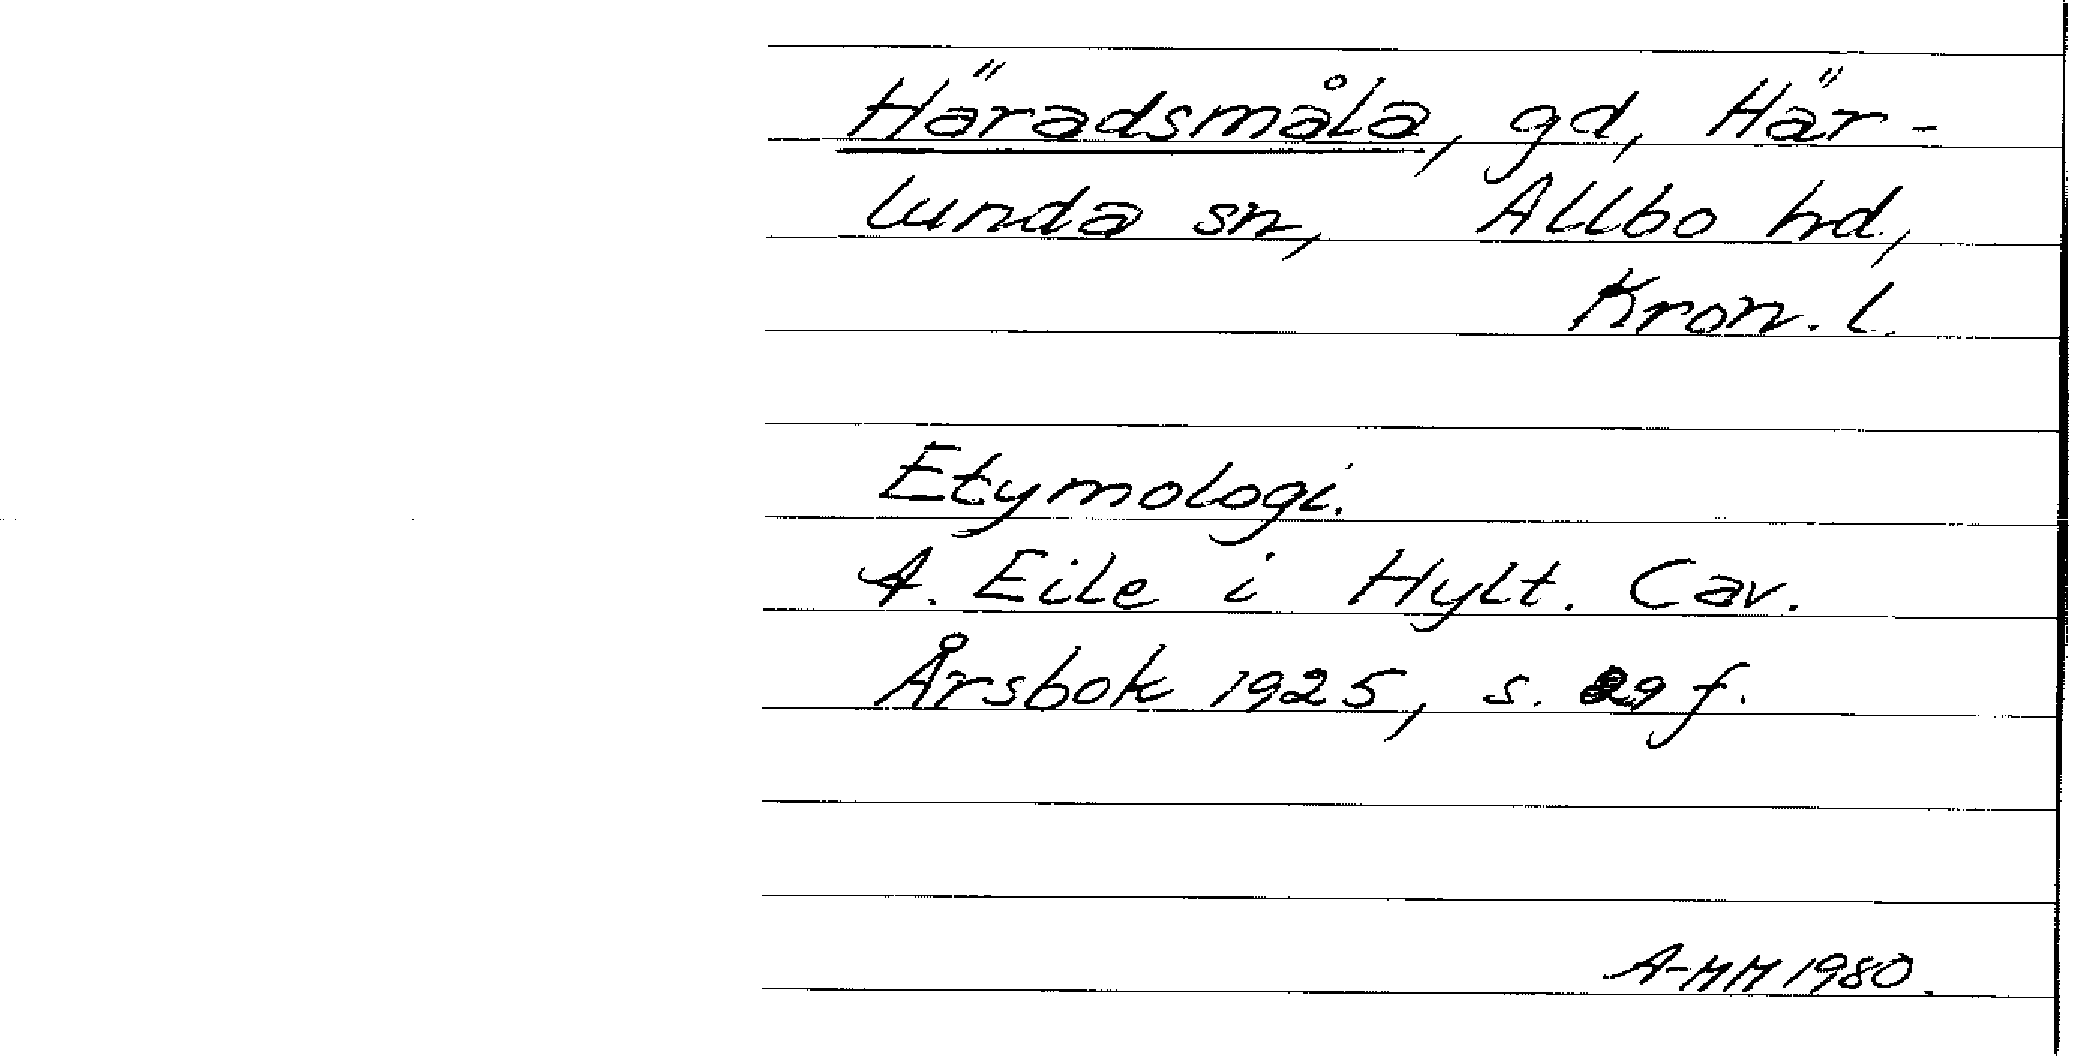 Häradsmåla, gd, Här-
lunda sn, Allbo hd,
Kron. l.
Etymologi.
A. Eile i Hylt. Cav.
Årsbok 1925, s. 29 f.
A-MM 1980.